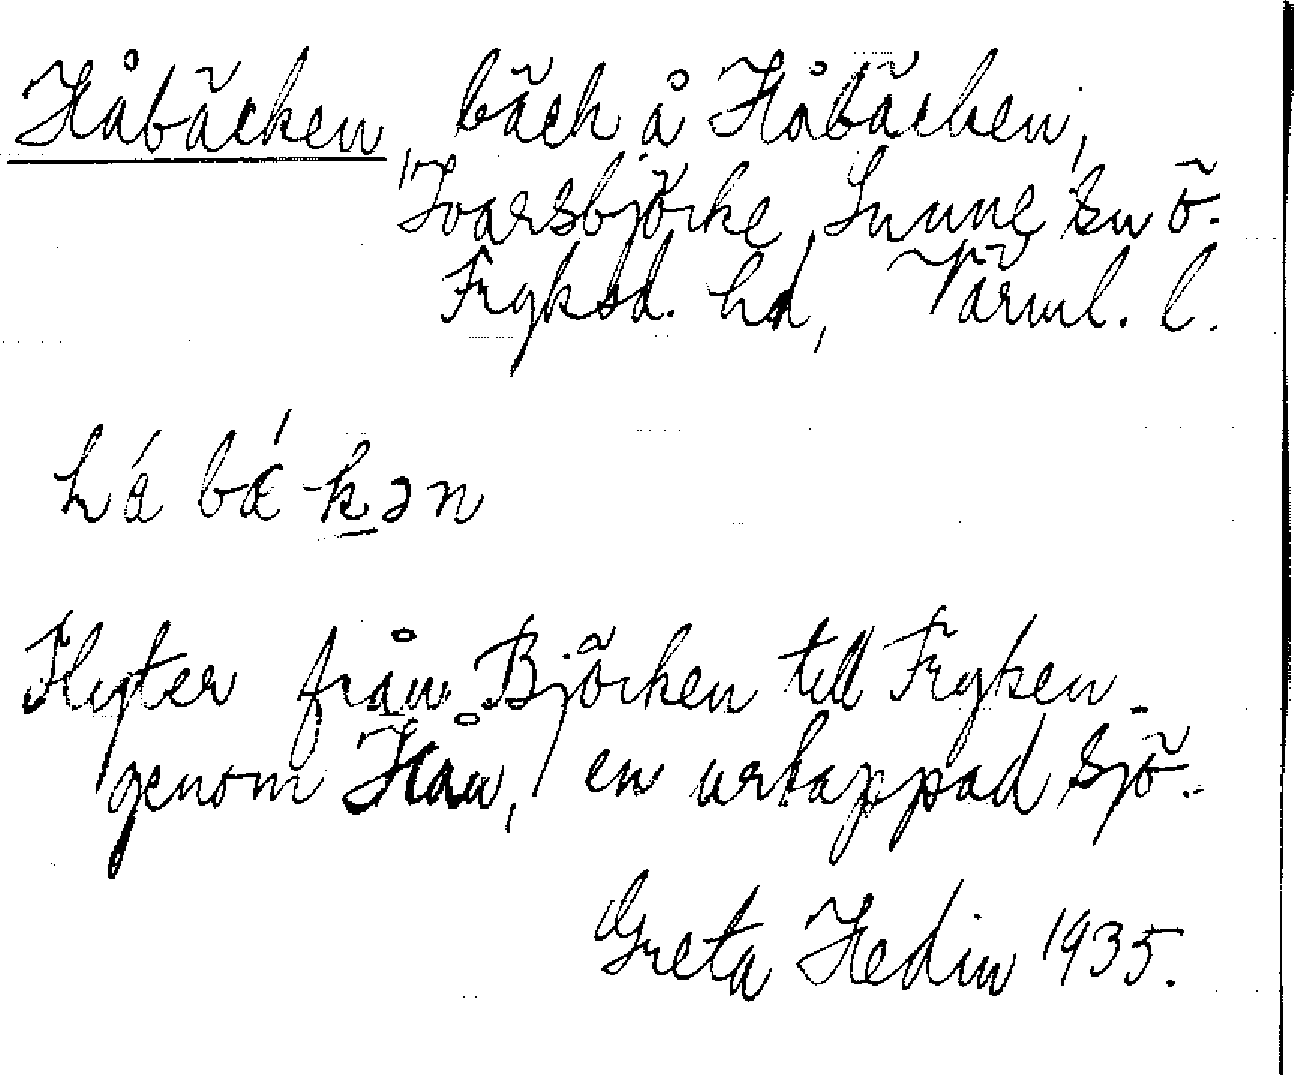 Håbäcken, bäck å Håbäcken,
Ivarsbjörke, Sunne sn ö.
Fryksd. hd, Värml. l.
há bǽ-kən
Flyter från Björken till Fryken
genom Hån, en urtappad sjö.
Greta Hedin 1935.